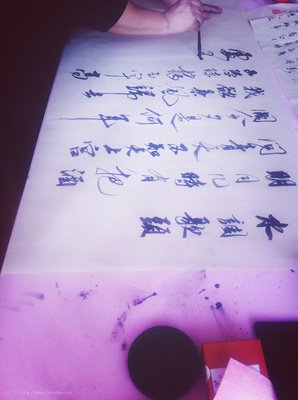 水調歌頭
明月几時有把酒
問青天不知天上宮
闕今夕是何年
我欲乘風歸去又
恐瓊樓玉宇高
處不